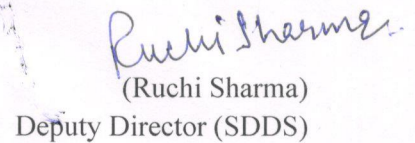 Ruchi Sharma
(Ruchi Sharma)
Deputy Director (SDDS)